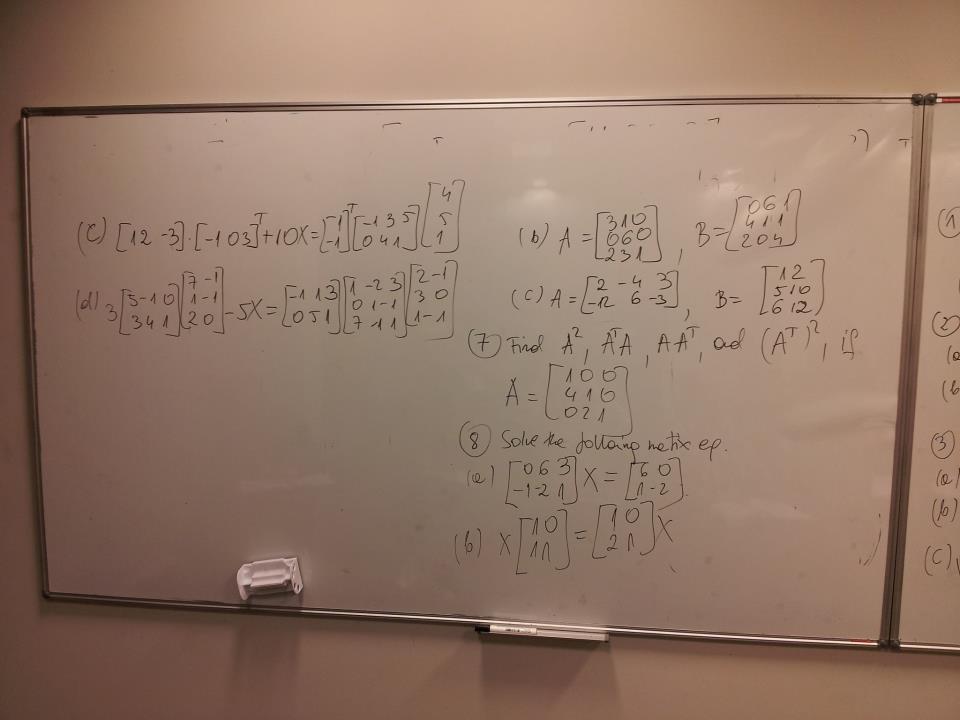 (c) [1 2 -3]·[-1 0 3]ᵀ+10X=[1; -1]ᵀ[-1 3 5; 0 4 1][4; 5; 1]
(d) 3[3 -1 0; 3 4 1][7 -1; 1 -1; 2 0]-5X=[-1 1 3; 0 5 1][1 -2 3; 0 1 -1; 7 -1 1][2 -1; 3 0; 1 -1]
(b) A=[3 1 0; 0 6 0; 2 3 1], B=[0 6 1; 4 1 1; 2 0 4]
(c) A=[2 -4 3; -12 6 -3], B=[1 2; 5 10; 6 12]
(7) Find A², AᵀA, AAᵀ, and (Aᵀ)², if
A=[1 0 0; 4 1 0; 0 2 1]
(8) Solve the following matrix eq.
(a) [0 6 3; -1 -2 1]X=[6 0; 1 -2].
(b) X[1 0; 1 1]=[1 0; 2 1]X
(1)
(2)
(a
(b
(3)
(a)
(b)
(c)